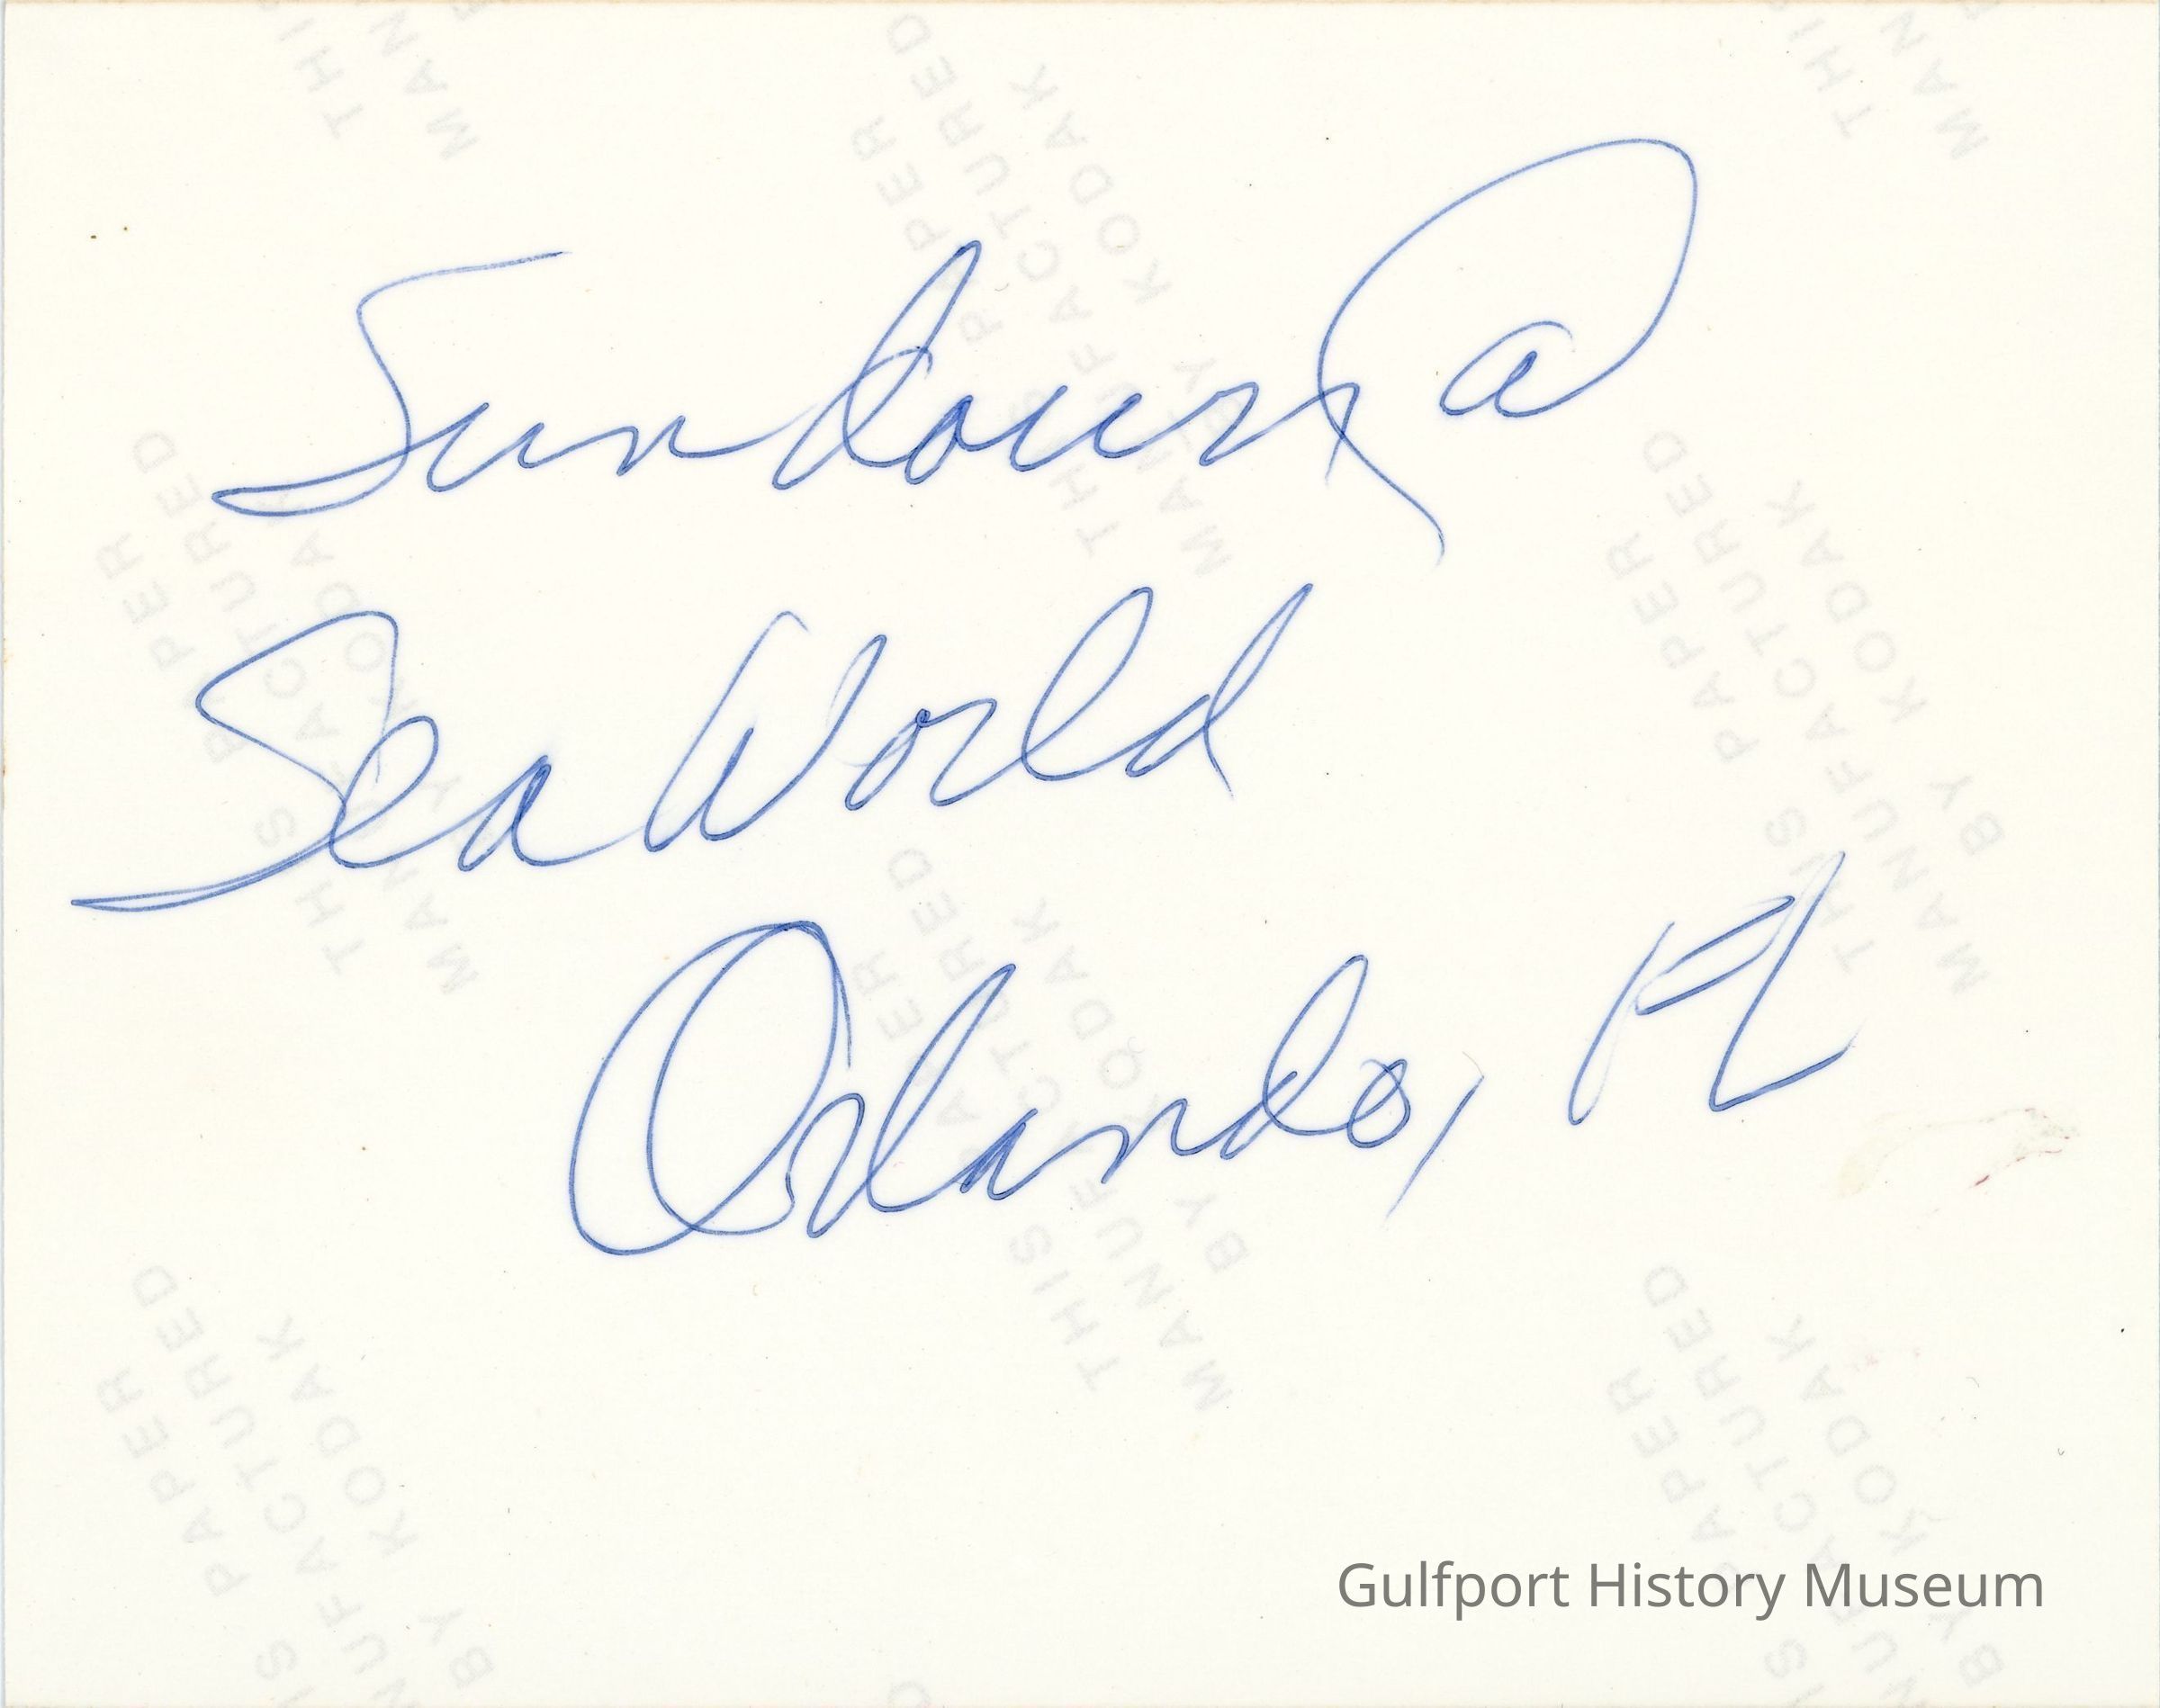 Sundown @
Sea World
Orlando, FL
THIS PAPER
MANUFACTURED
BY KODAK
Gulfport History Museum